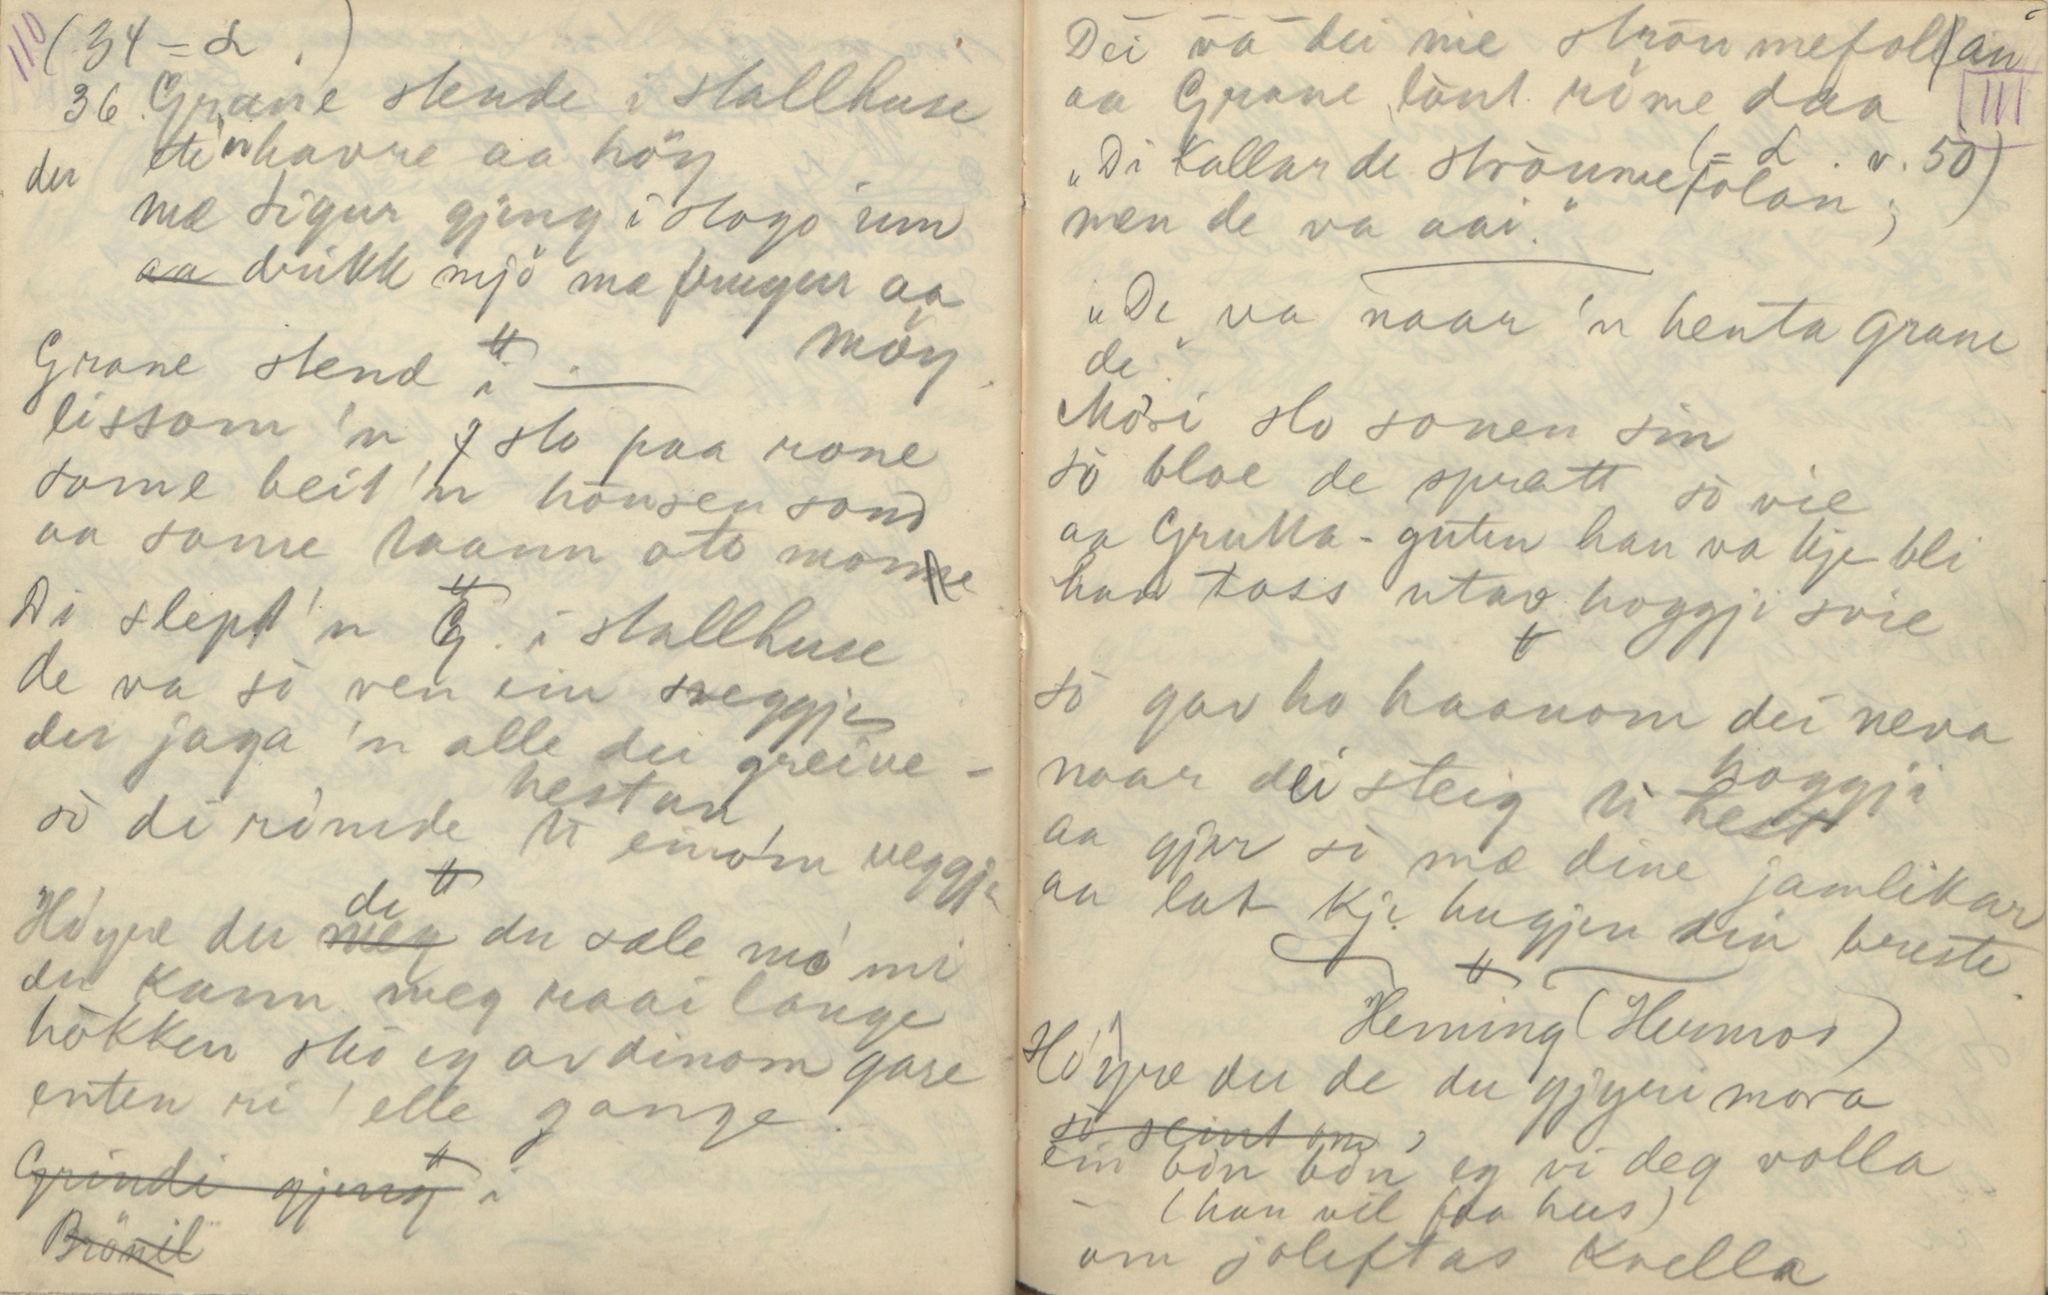 110
(34 = L .)
36. Grane stende i stallhuse
der eti'n havre aa höy
mæ Sigur gjeng i stogo inn
aa drikk mjö mæ frugur aa
möy.
Grane stend i
lissom 'n sto paa rone
some beit 'n hausen sond
aa some taann oto monne
Di slept 'n G. i stallhuse
de va so ven ein sveggje
der jaga 'n alle dei greive-
hestan
so di rimde ti einom veggje
Höyre du meg de du sæle mo mi
du kann meg raai lange
hökken sko eg av dinom gare
enten ri' elle gange.
Grindi gjeng i
Brönil
Dei va dei nie straumefollan
111
aa Grane lönt rime daa
(= L . v. 50)
"Di kallar de straumefolan,
men de va aai."
"De va naar 'n henta Grane
de"
Mo'ri slo sonen sin
so bloe de spratt so vie
aa Grulla-guten han va kje bli
han toss utav hoggji svie
so gav ho haanom dei neva
naar dei steig ti hest hoggji
aa gjer so mæ dine jamlikar
aa lat kje hugjen din breste.
Heming (Hermo )
Höyre du de du gjyri mora
so seint om,
ein bön bön eg vi deg volla
(han vil faa hus)
om joleftas kvella